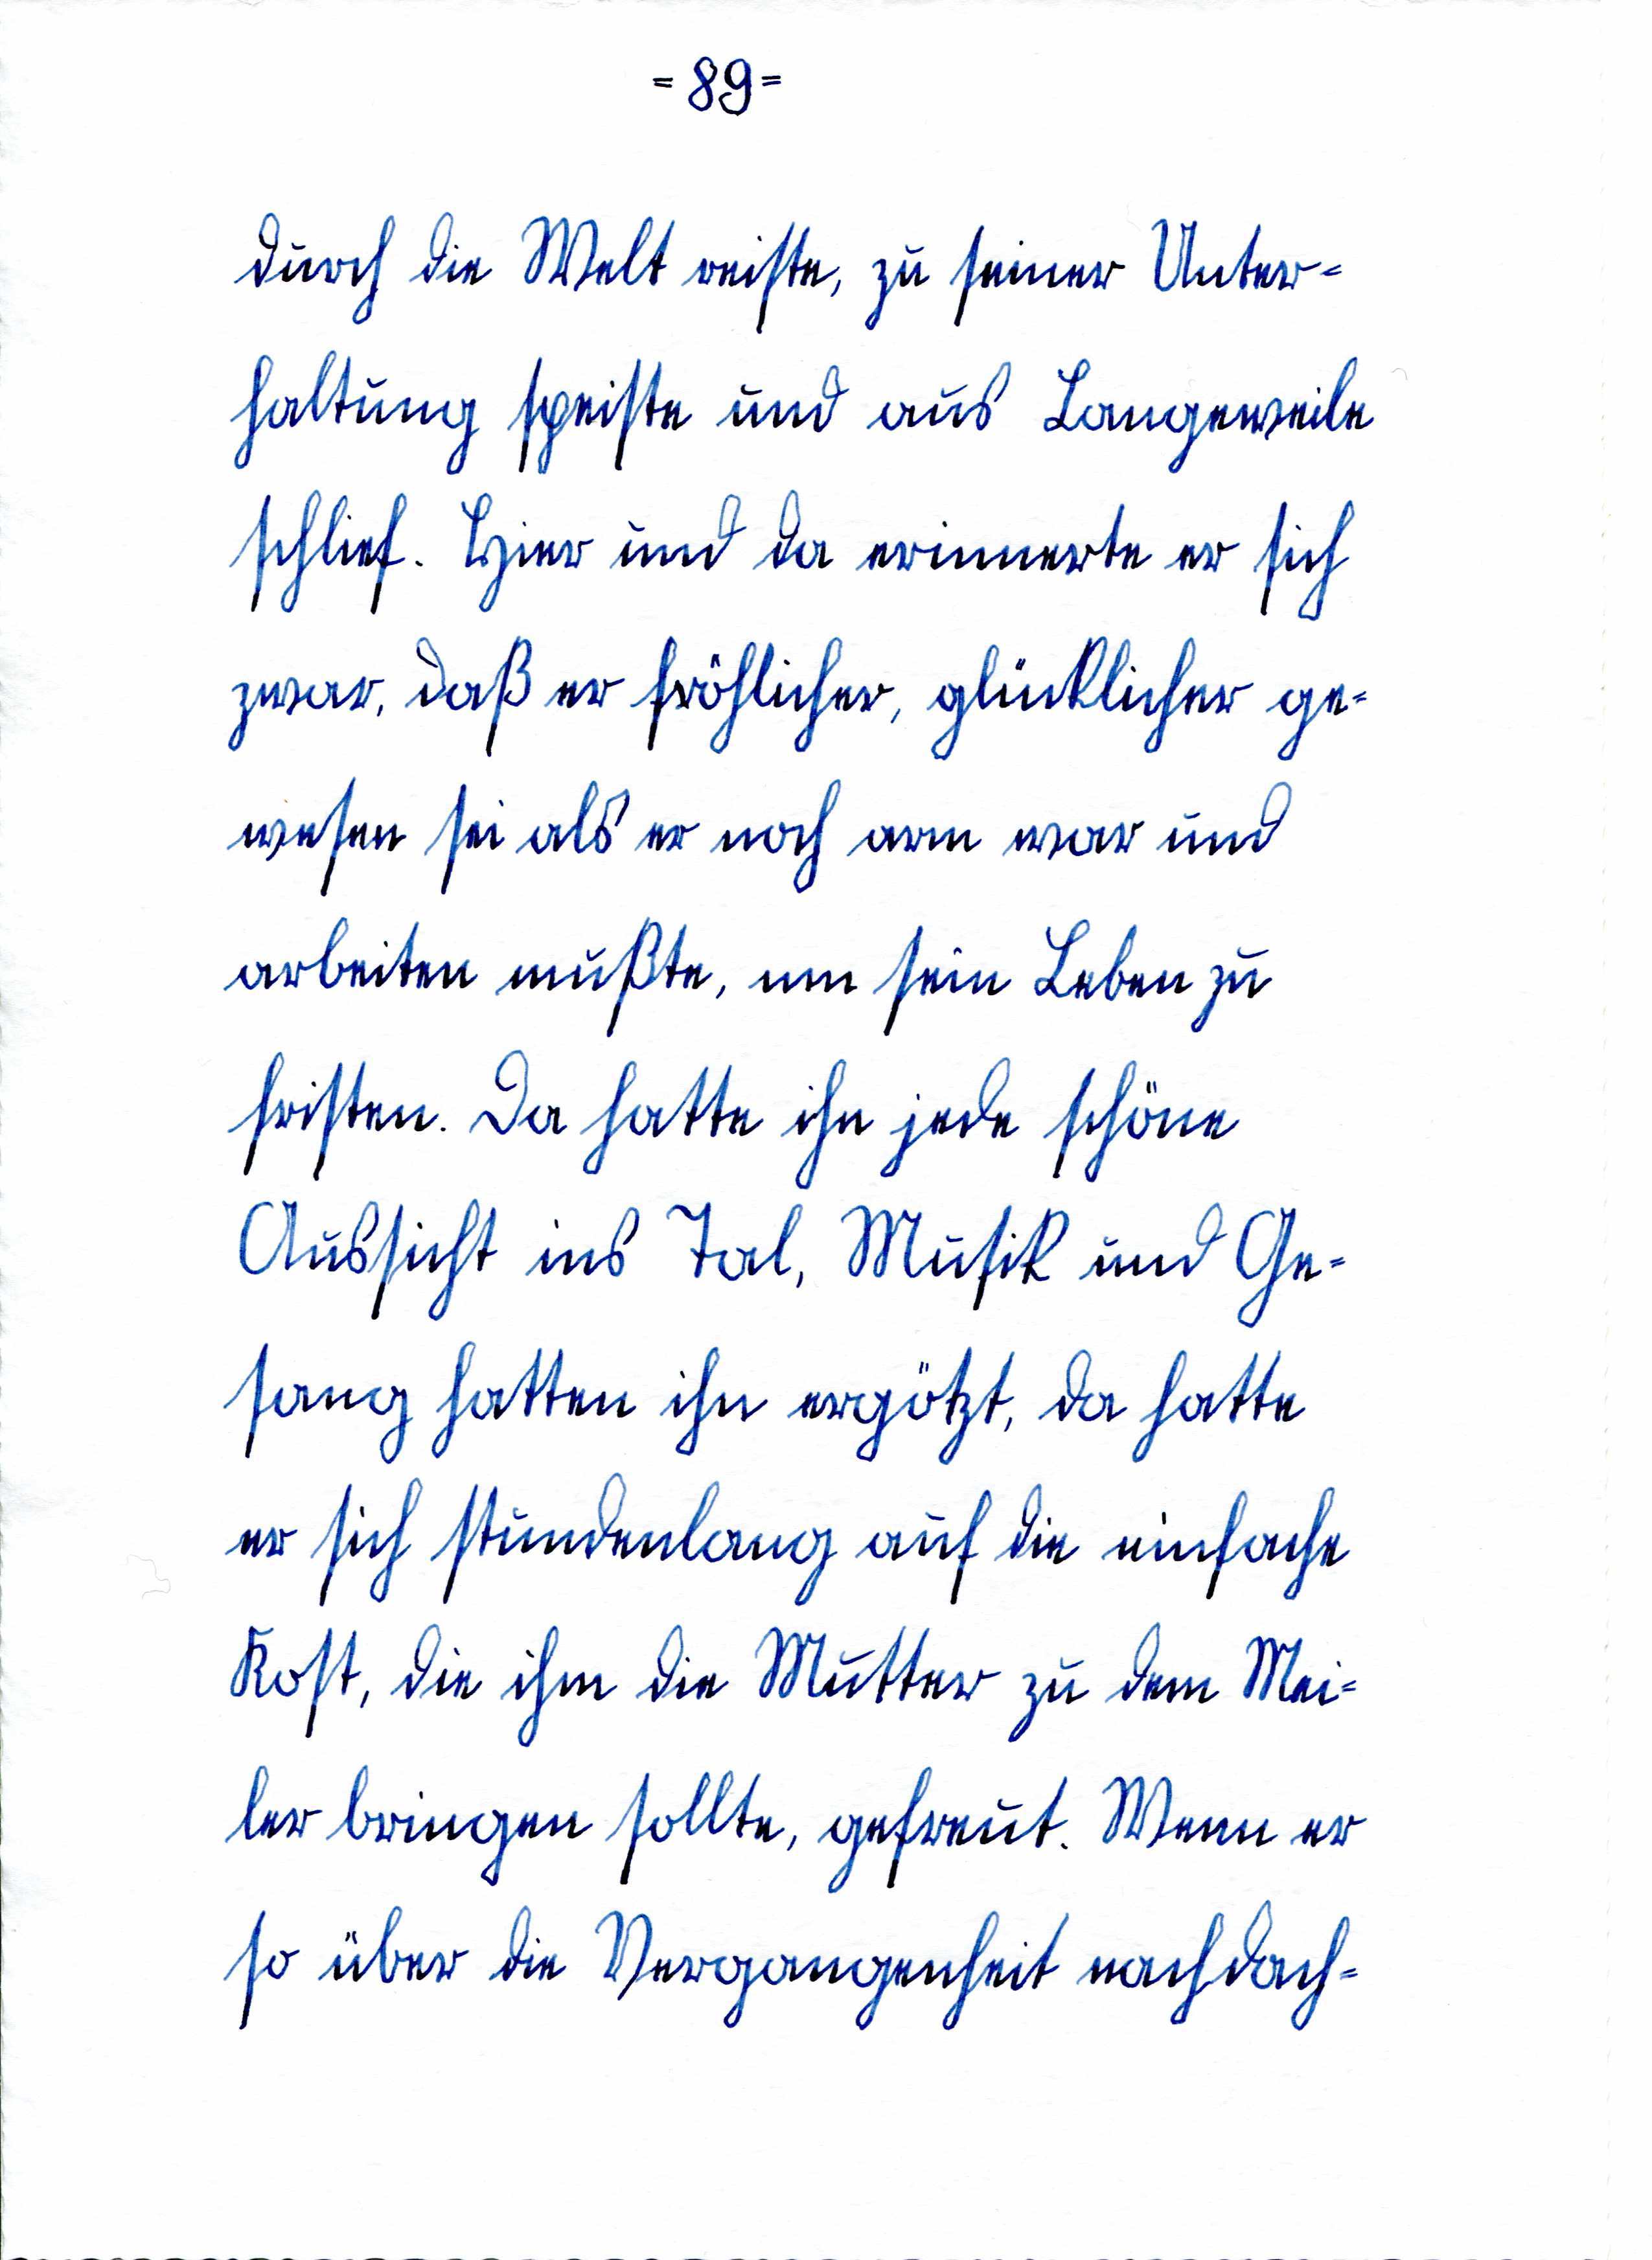 =89=
durch die Welt reiste, zu seiner Unter=
haltung speiste und aus Langeweile
schlief. Hier und da erinnerte er sich
zwar, daß er fröhlicher, glücklicher ge=
wesen sei als er noch arm war und
arbeiten mußte, um sein Leben zu
fristen. Da hatte ihn jede schöne
Aussicht ins Tal, Musik und Ge=
sang hatten ihn ergötzt, da hatte
er sich stundenlang auf die einfache
Kost, die ihm die Mutter zu dem Mei=
ler bringen sollte, gefreut. Wenn er
so über die Vergangenheit nachdach=